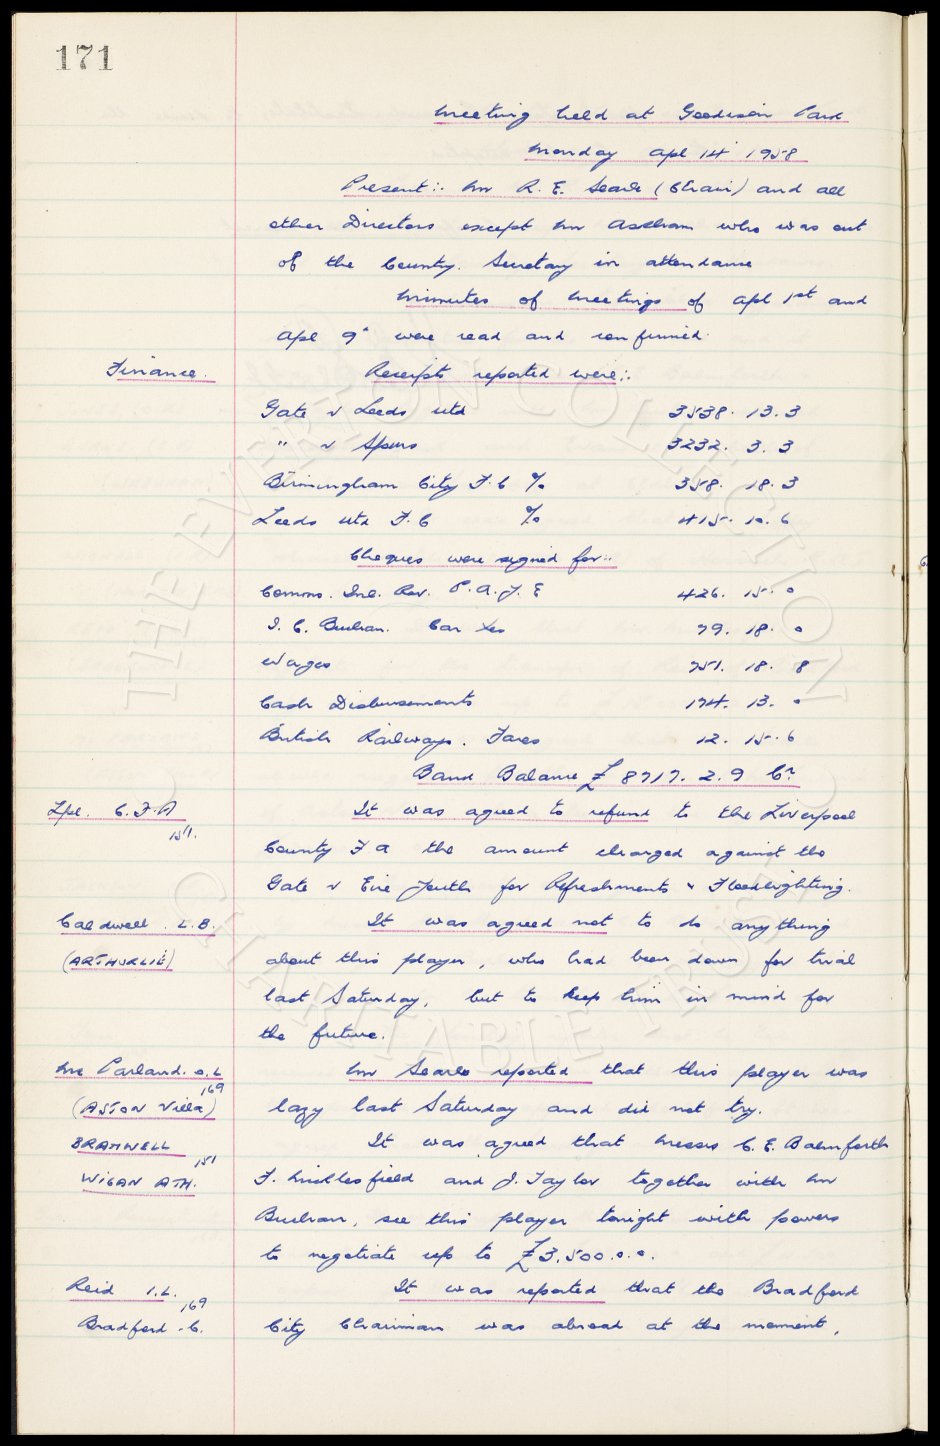 171
Meeting held at Goodison Park
Monday Apl 14" 1958
Present:- Mr R. E. Searle (Chair) and all
other Directors except Mr Askham who was out
of the Country. Secretary in attendance
Minutes of Meetings of Apl 1st and
Apl 9" were read and confirmed.
Finance. Receipts reported were:-
Gate v Leeds Utd 3538. 13. 3
" v Spurs 3232. 3. 3
Birmingham City F.C % 358. 18. 3
Leeds Utd F.C % 415. 10. 6
Cheques were signed for:-
Comms. Inl. Rev. P.A.Y.E 426. 15. 0
I. C. Buchan. Car Xes 79. 18. 0
Wages 751. 18. 8
Cash Disbursements 174. 13. 0
British Railways. Fares 12. 15. 6
Bank Balance £8717. 2. 9 Cr
Lpl. C.F.A It was agreed to refund to the Liverpool
151. County F A the amount charged against the
Gate v Eire Youth for Refreshments & Floodlighting.
Caldwell. L.B. It was agreed not to do anything
(ARTHURLIE) about this player, who had been down for trial
last Saturday, but to keep him in mind for
the future.
Mc Parland. O.L Mr Searle reported that this player was
169
(ASTON Villa) lazy last Saturday and did not try.
BRAMWELL It was agreed that Messrs C. E. Balmforth
151
WIGAN ATH. F. Micklesfield and J. Taylor together with Mr
Buchan, see this player tonight with powers
to negotiate up to £3,500.0.0.
Reid I.L. It was reported that the Bradford
169
Bradford .C. City Chairman was abroad at the moment,
THE EVERTON COLLECTION
CHARITABLE TRUST